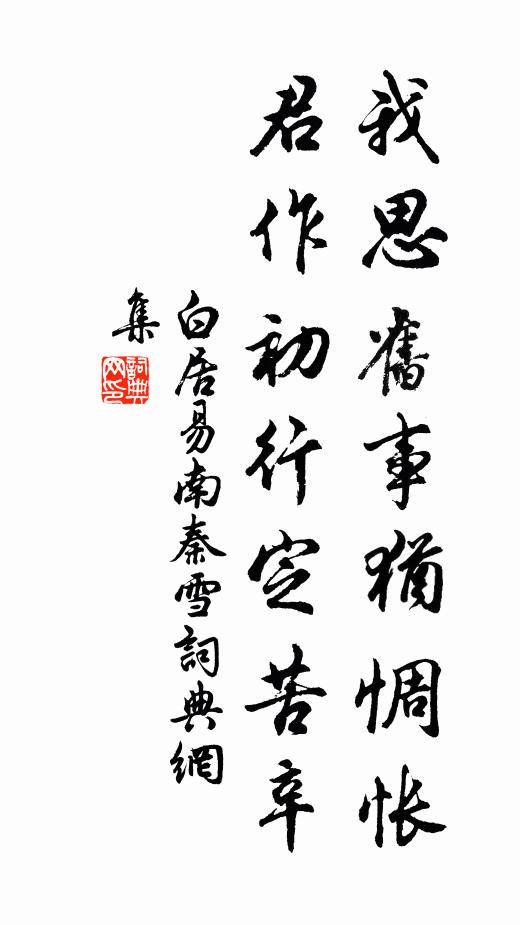 我思舊事猶惆悵
君作初行定苦辛
白居易南秦雪詞典網
集
詞典
网印